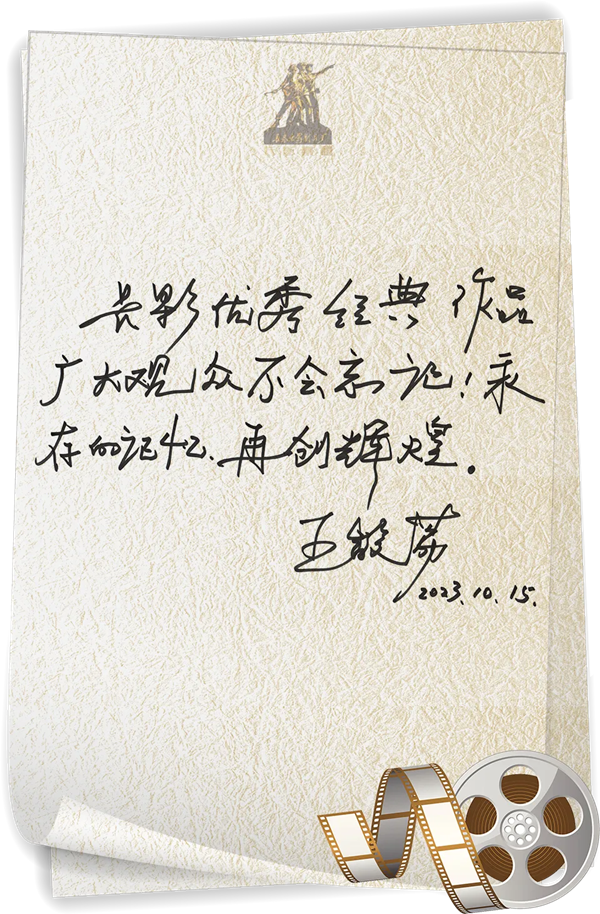 长影优秀经典作品
广大观众不会忘记！永
存的记忆、再创辉煌。
王馥荔
2023.10.15.